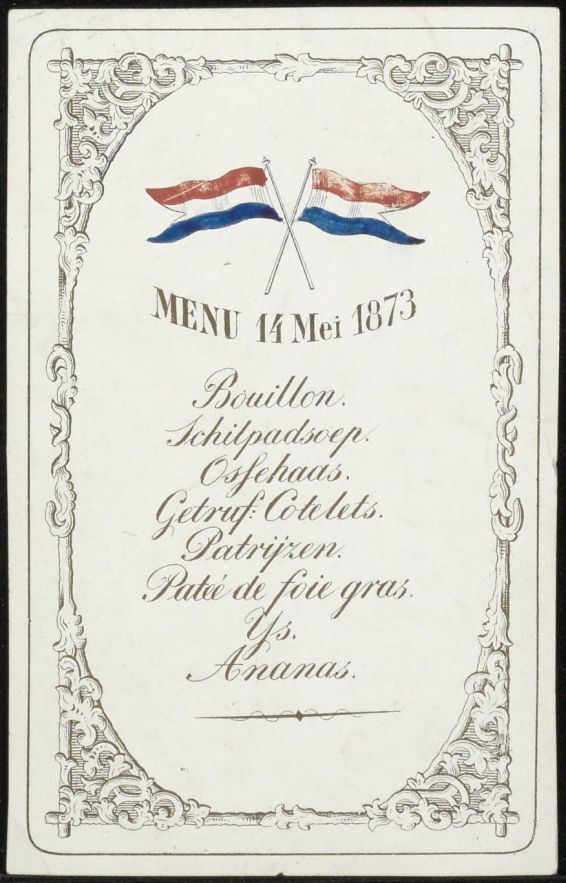 MENU 14 Mei 1873
Bouillon.
Schilpadsoep.
Ossehaas.
Getruf: Cotelets.
Patrijzen.
Pateé de foie gras.
Ys.
Ananas.